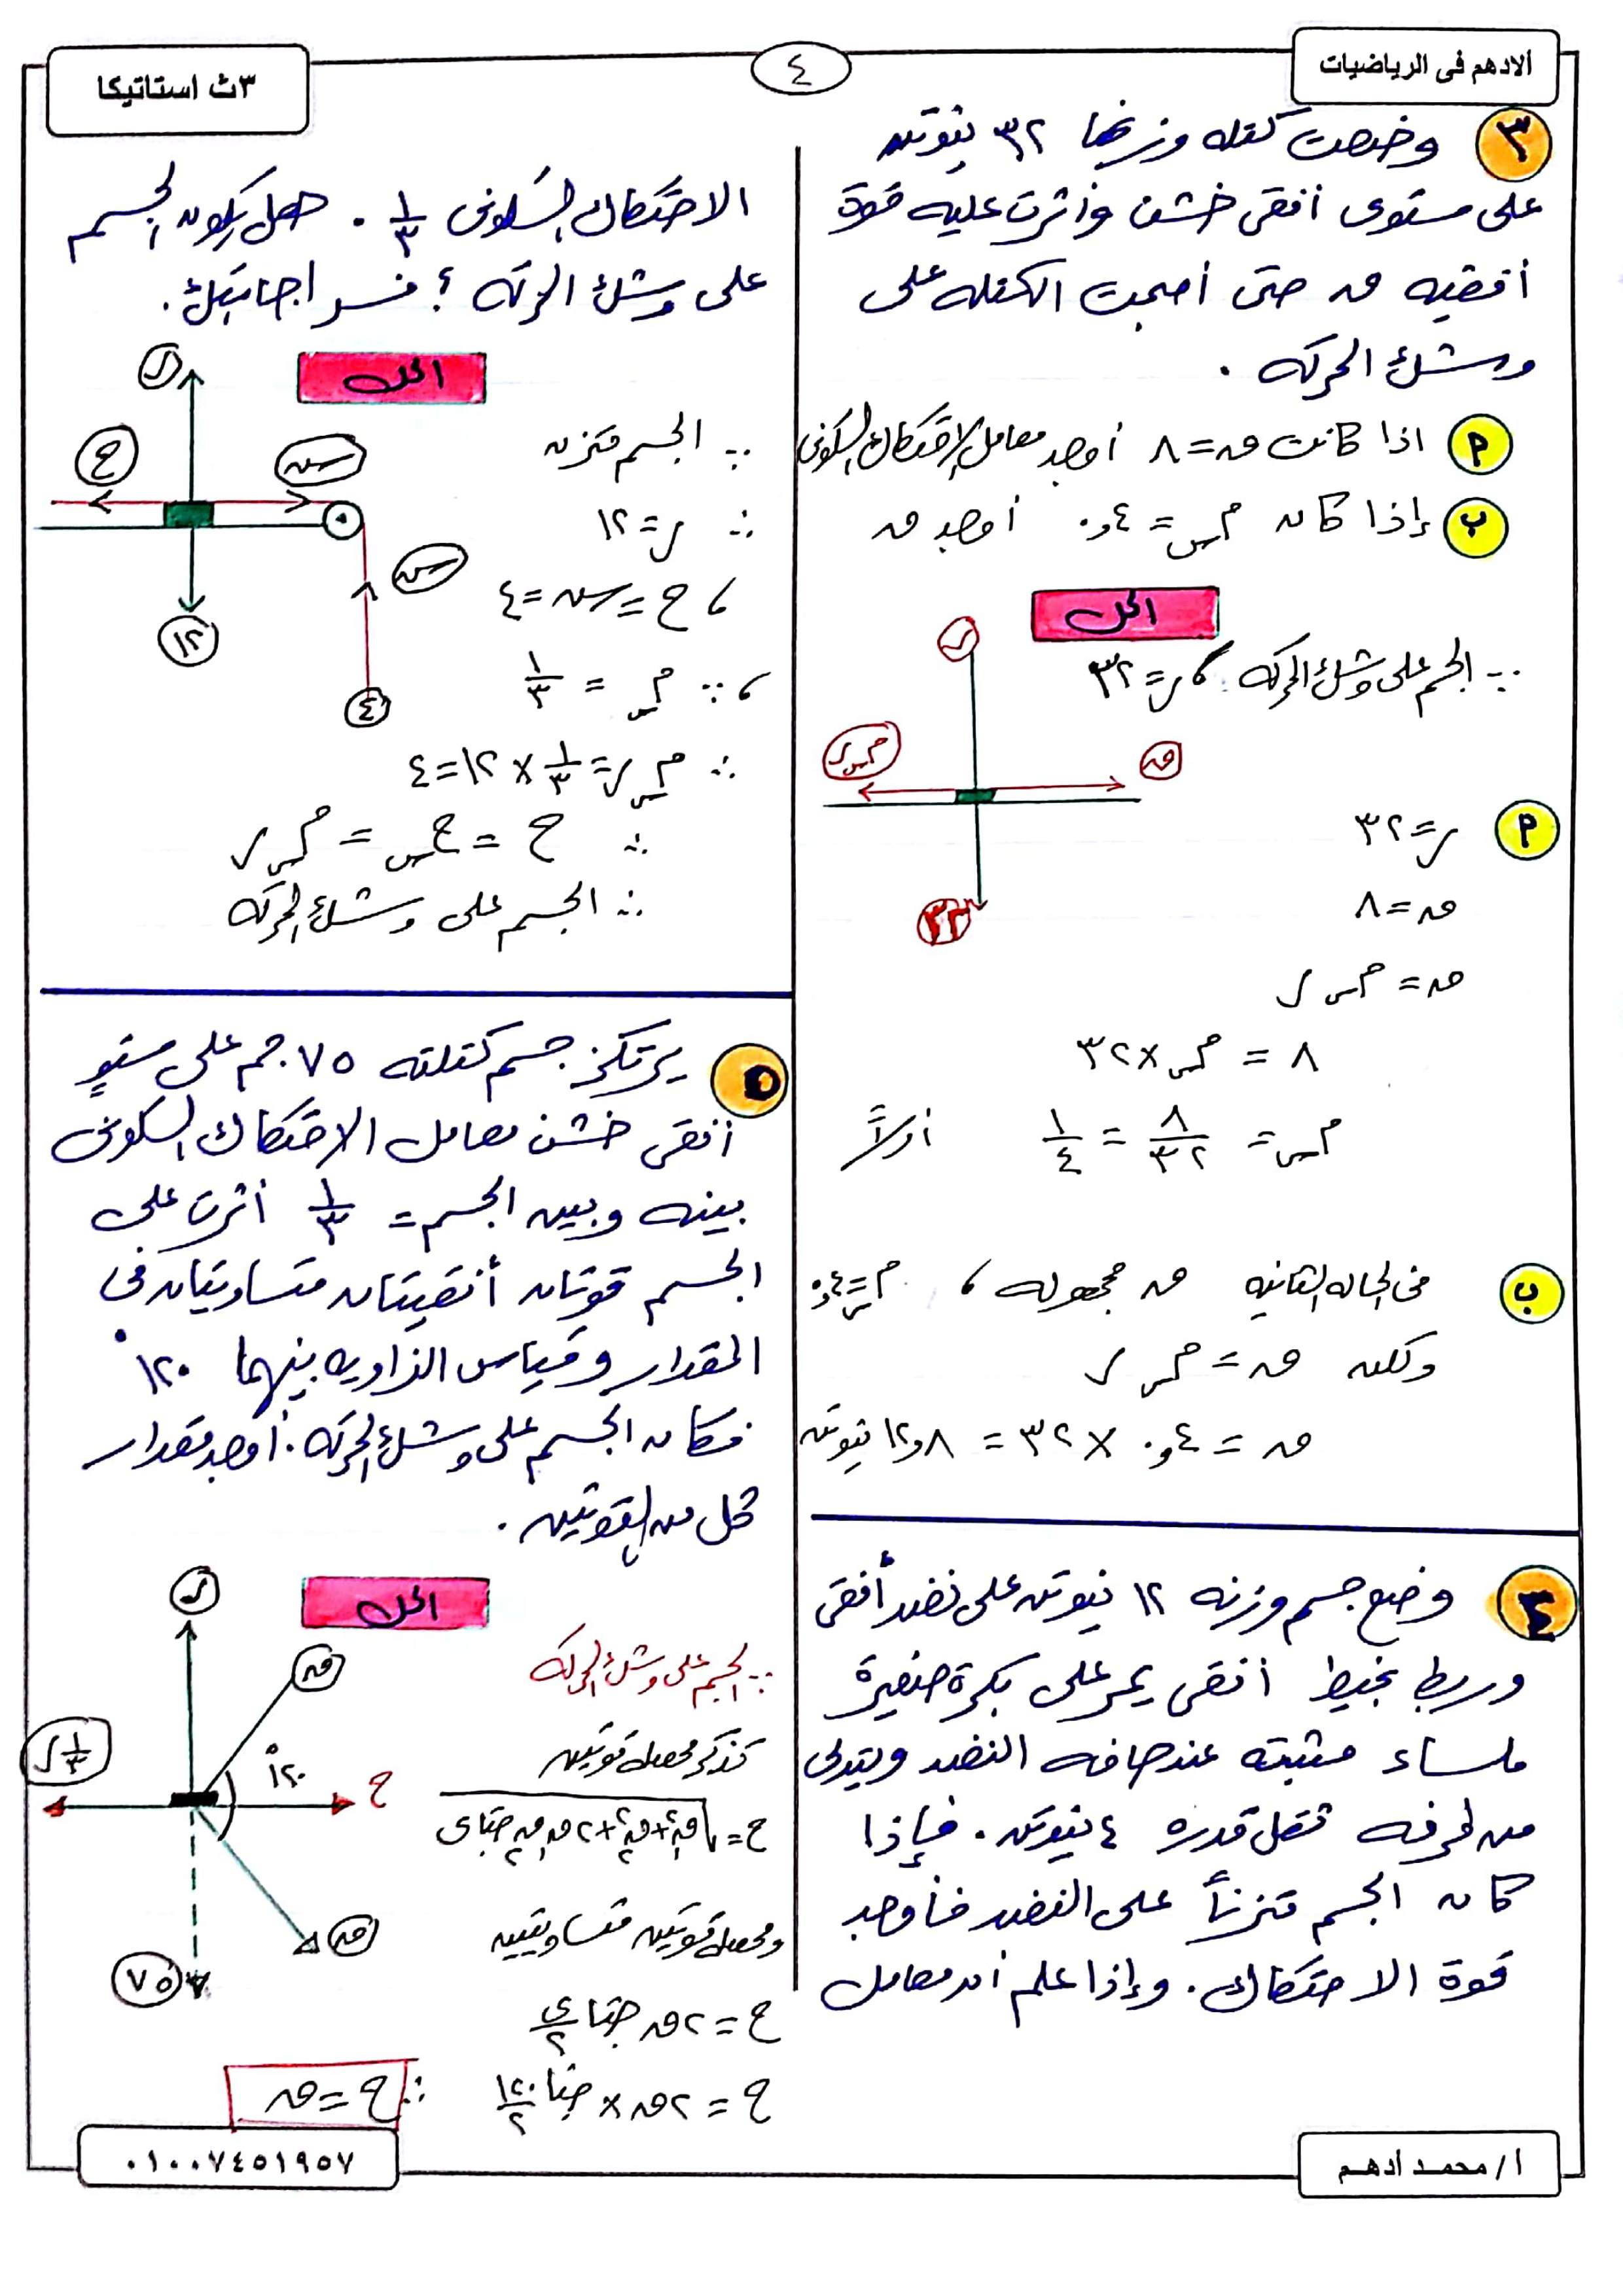 الادهم فى الرياضيات
٤
٣ث استاتيكا
٣ وضعت كتله وزنها ٣٢ نيوتن
على مستوى أفقى خشن وأثرت عليه قوة
أفقيه ق حتى أصبحت الكتله على
وشك الحركه .
٢ اذا كانت ق = ٨ أوجد معامل الاحتكاك السكونى
ب إذا كان م س = ٤و٠ أوجد ق
الحل
∵ الجسم على وشك الحركه ، ر = ٣٢
ر
م س ر
ق
٣٢
٢ ر = ٣٢
ق = ٨
ق = م س ر
٨ = م س × ٣٢
م س = ٨/٣٢ = ١/٤ أولاً
ب فى الحاله الثانيه ق مجهوله ، م س = ٤و٠
ولكن ق = م س ر
ق = ٤و٠ × ٣٢ = ٨و١٢ نيوتن
٤ وضع جسم وزنه ١٢ نيوتن على نضد أفقى
وربط بخيط أفقى يمر على بكرة صغيرة
ملساء مثبته عند حافه النضد ويتدلى
من طرفه ثقل قدره ٤ نيوتن . فإذا
كان الجسم متزناً على النضد فأوجد
قوة الاحتكاك . وإذا علم أن معامل
الاحتكاك السكونى ١/٣ . هل يكون الجسم
على وشك الحركه ؟ فسر اجابتك .
الحل
ر
ح
ش
ش
١٢
٤
∵ الجسم متزن
∴ ر = ١٢
، ح = ش = ٤
، ∵ م س = ١/٣
∴ م س ر = ١/٣ × ١٢ = ٤
∴ ح = ح س = م س ر
∴ الجسم على وشك الحركه
٥ يرتكز جسم كتلته ٧٥ جم على مستوٍ
أفقى خشن معامل الاحتكاك السكونى
بينه وبين الجسم = ١/٣ أثرت على
الجسم قوتان أفقيتان متساويتان فى
المقدار وقياس الزاويه بينهما ١٢٠°
فكان الجسم على وشك الحركه . أوجد مقدار
كل من القوتين .
الحل
ر
ق
١/٣ ر
١٢٠°
ح
ق
٧٥
∵ الجسم على وشك الحركه
تذكر محصلة قوتين
ح = √ق₁² + ق₂² + ٢ ق₁ ق₂ جتا ى
ومحصلة قوتين متساويتين
ح = ٢ ق جتا ى/٢
ح = ٢ ق × جتا ١٢٠/٢ ∴ ح = ق
أ/ محمد ادهم
٠١٠٠٧٤٥١٩٥٧